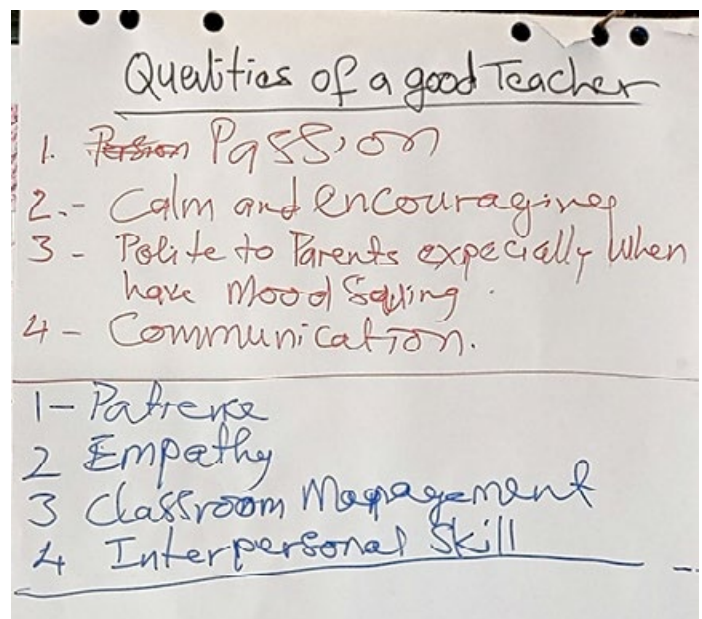 Qualities of a good Teacher
1. Passion
2.- Calm and encouraging
3 - Polite to Parents expecially When
have Mood Swing.
4 - Communication.
1- Patience
2 Empathy
3 Classroom Management
4 Interpersonal Skill